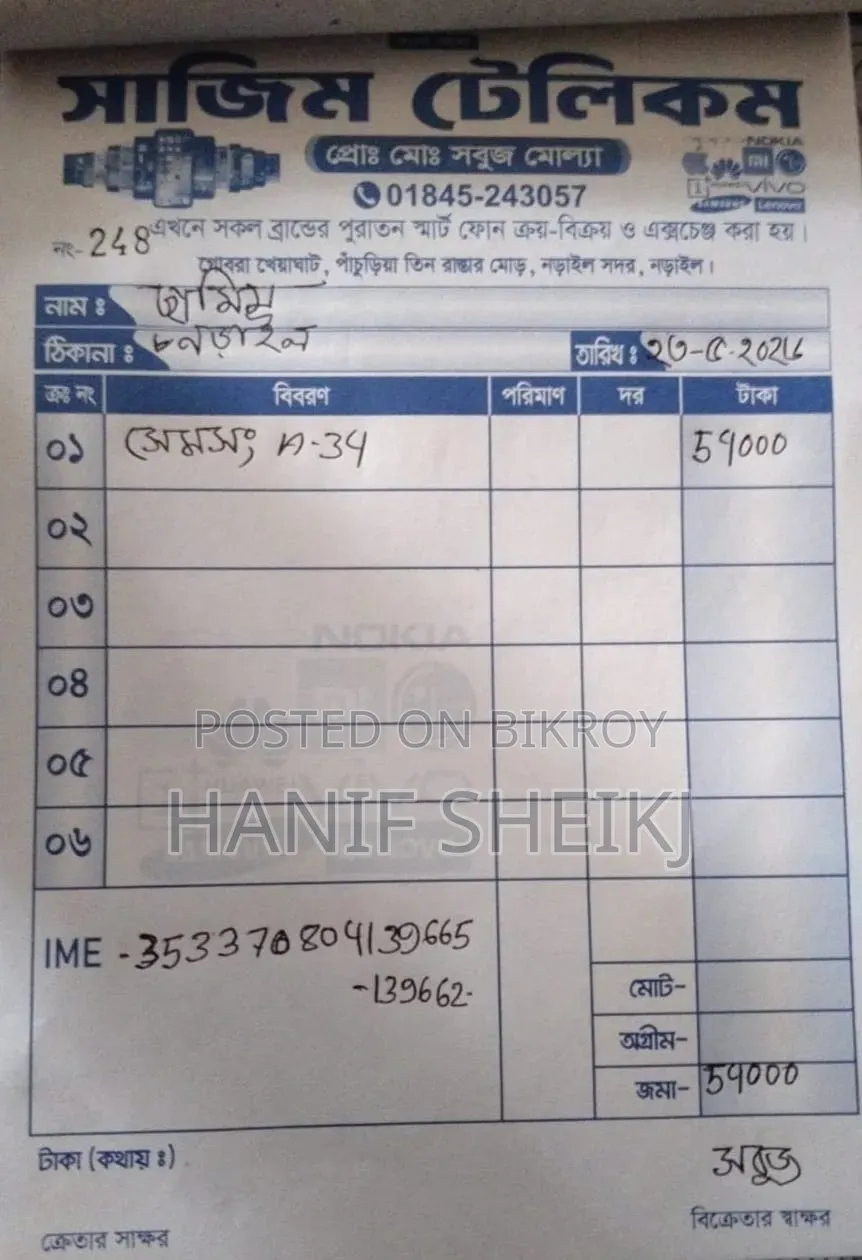 সাজিম টেলিকম
প্রোঃ মোঃ সবুজ মোল্যা
01845-243057
NOKIA
mi
vivo
SAMSUNG Lenovo
নং- 248
এখানে সকল ব্রান্ডের পুরাতন স্মার্ট ফোন ক্রয়-বিক্রয় ও এক্সচেঞ্জ করা হয়।
খেয়াঘাট, পাঁচুড়িয়া তিন রাস্তার মোড়, নড়াইল সদর, নড়াইল।
নাম ঃ
ঠিকানা ঃ নড়াইল তারিখ ঃ
ক্রঃ নং বিবরণ পরিমাণ দর টাকা
০১ সেমসং A-34 54000
০২
০৩
০৪
০৫
০৬
NOKIA
POSTED ON BIKROY
HANIF SHEIKJ
IME -353370804139665
-139662-
মোট-
অগ্রীম-
জমা- 54000
টাকা (কথায় ঃ)
সবুজ
বিক্রেতার স্বাক্ষর
ক্রেতার সাক্ষর